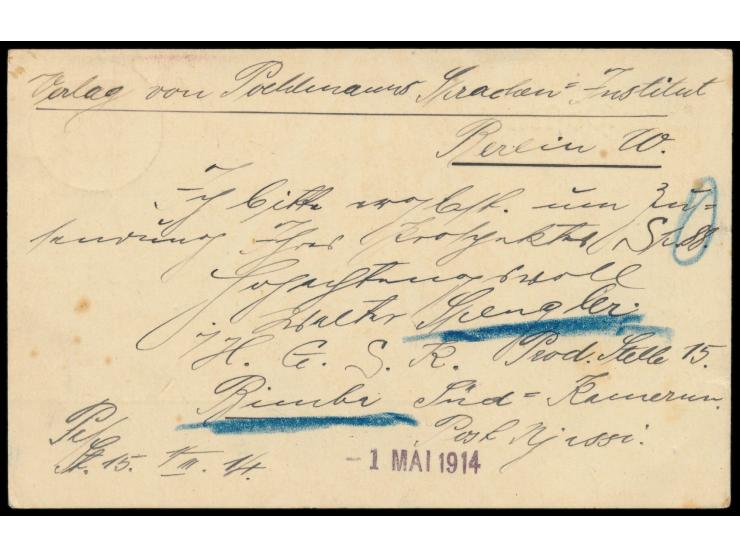 Verlag von Poehlmanns Sprachen-Institut
Berlin W.
Ich bitte erg. um Zu-
sendung Ihres Prospektes
Hochachtungsvoll
Walter Spengler.
H. G. S. K. Prod. Stelle 15.
Bimba Süd-Kamerun.
Post Njassi.
St. 15. III. 14.
- 1 MAI 1914